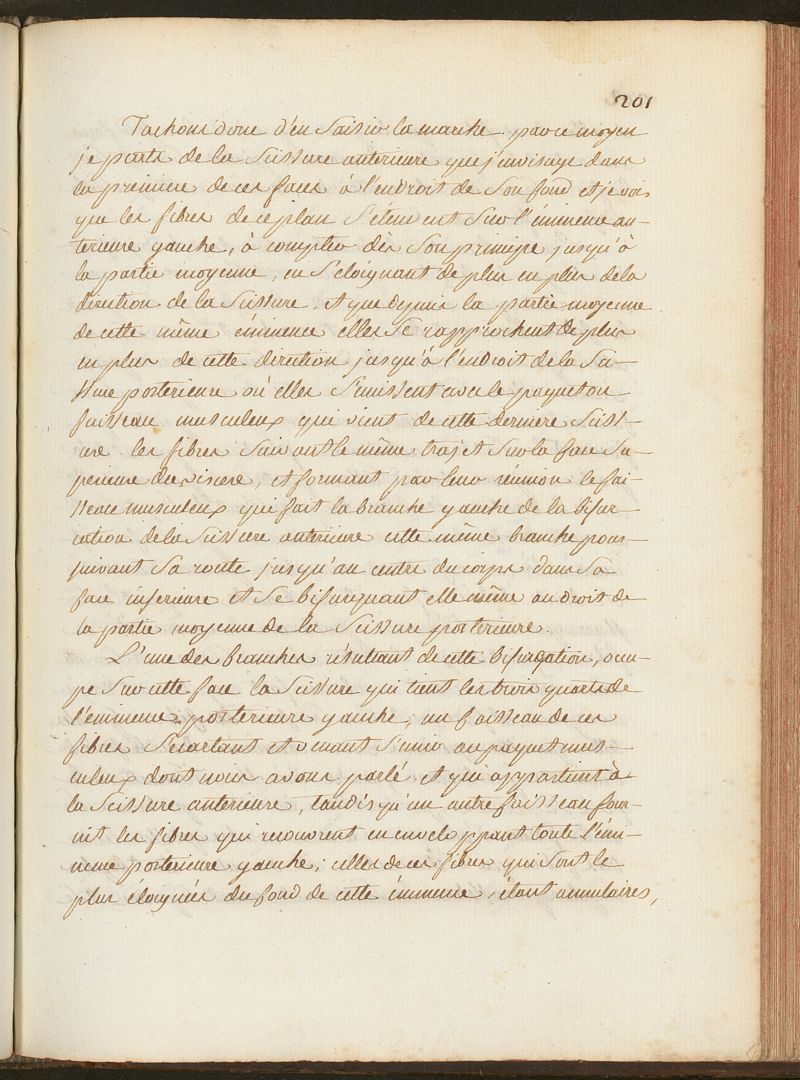 201
Tachons donc d'en Saisir la marche. par ce moyen
je parts de la Scissure anterieure que j'envisage dans
la premiere de ces faces à l'endroit de Son fond et je vois
que les fibres de ce plan S'étendent Sur l'éminence an-
terieure gauche, à compter dès Son principe jusqu'à
la partie moyenne, en S'eloignant de plus en plus de la
direction de la Scissure, et que depuis la partie moyenne
de cette même éminence elles Se rapprochent de plus
en plus de cette direction jusqu'à l'endroit de la Sci-
ssure posterieure où elles S'unissent avec le paquet ou
faisseau musculeux qui vient de cette derniere Sciss-
ure. les fibres Suivant le même trajet Sur la face Su-
perieure du viscere, et formant par leur réunion le fai-
sseau musculeux qui fait la branche gauche de la bifur-
cation de la Scissure anterieure cette même branche pour-
suivant Sa route jusqu'au centre du corps dans Sa
face inferieure et Se bifurquant elle même au droit de
la partie moyenne de la Scissure posterieure.
L'une des branches résultant de cette bifurcation, occu-
pe Sur cette face la Scissure qui tient les trois quarts de
l'éminence posterieure gauche, un faisseau de ces
fibres S'ecartant et venant S'unir au paquet mus-
culeux dont nous avons parlé et qui appartient à
la Scissure anterieure, tandis qu'un autre faisseau four-
nit les fibres qui recouvrent en enveloppant toute l'émi-
nence posterieure gauche; celles de ces fibres qui Sont le
plus éloignées du fond de cette éminence, étant annulaires,